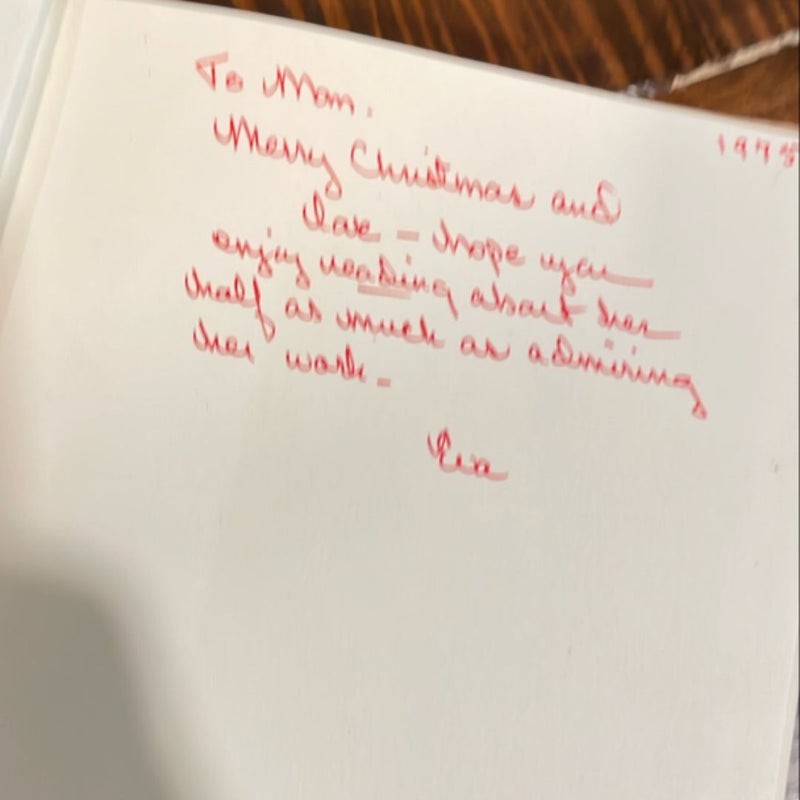 To Mom.
1975
Merry Christmas and
love - hope you
enjoy reading about her
half as much as admiring
her work.